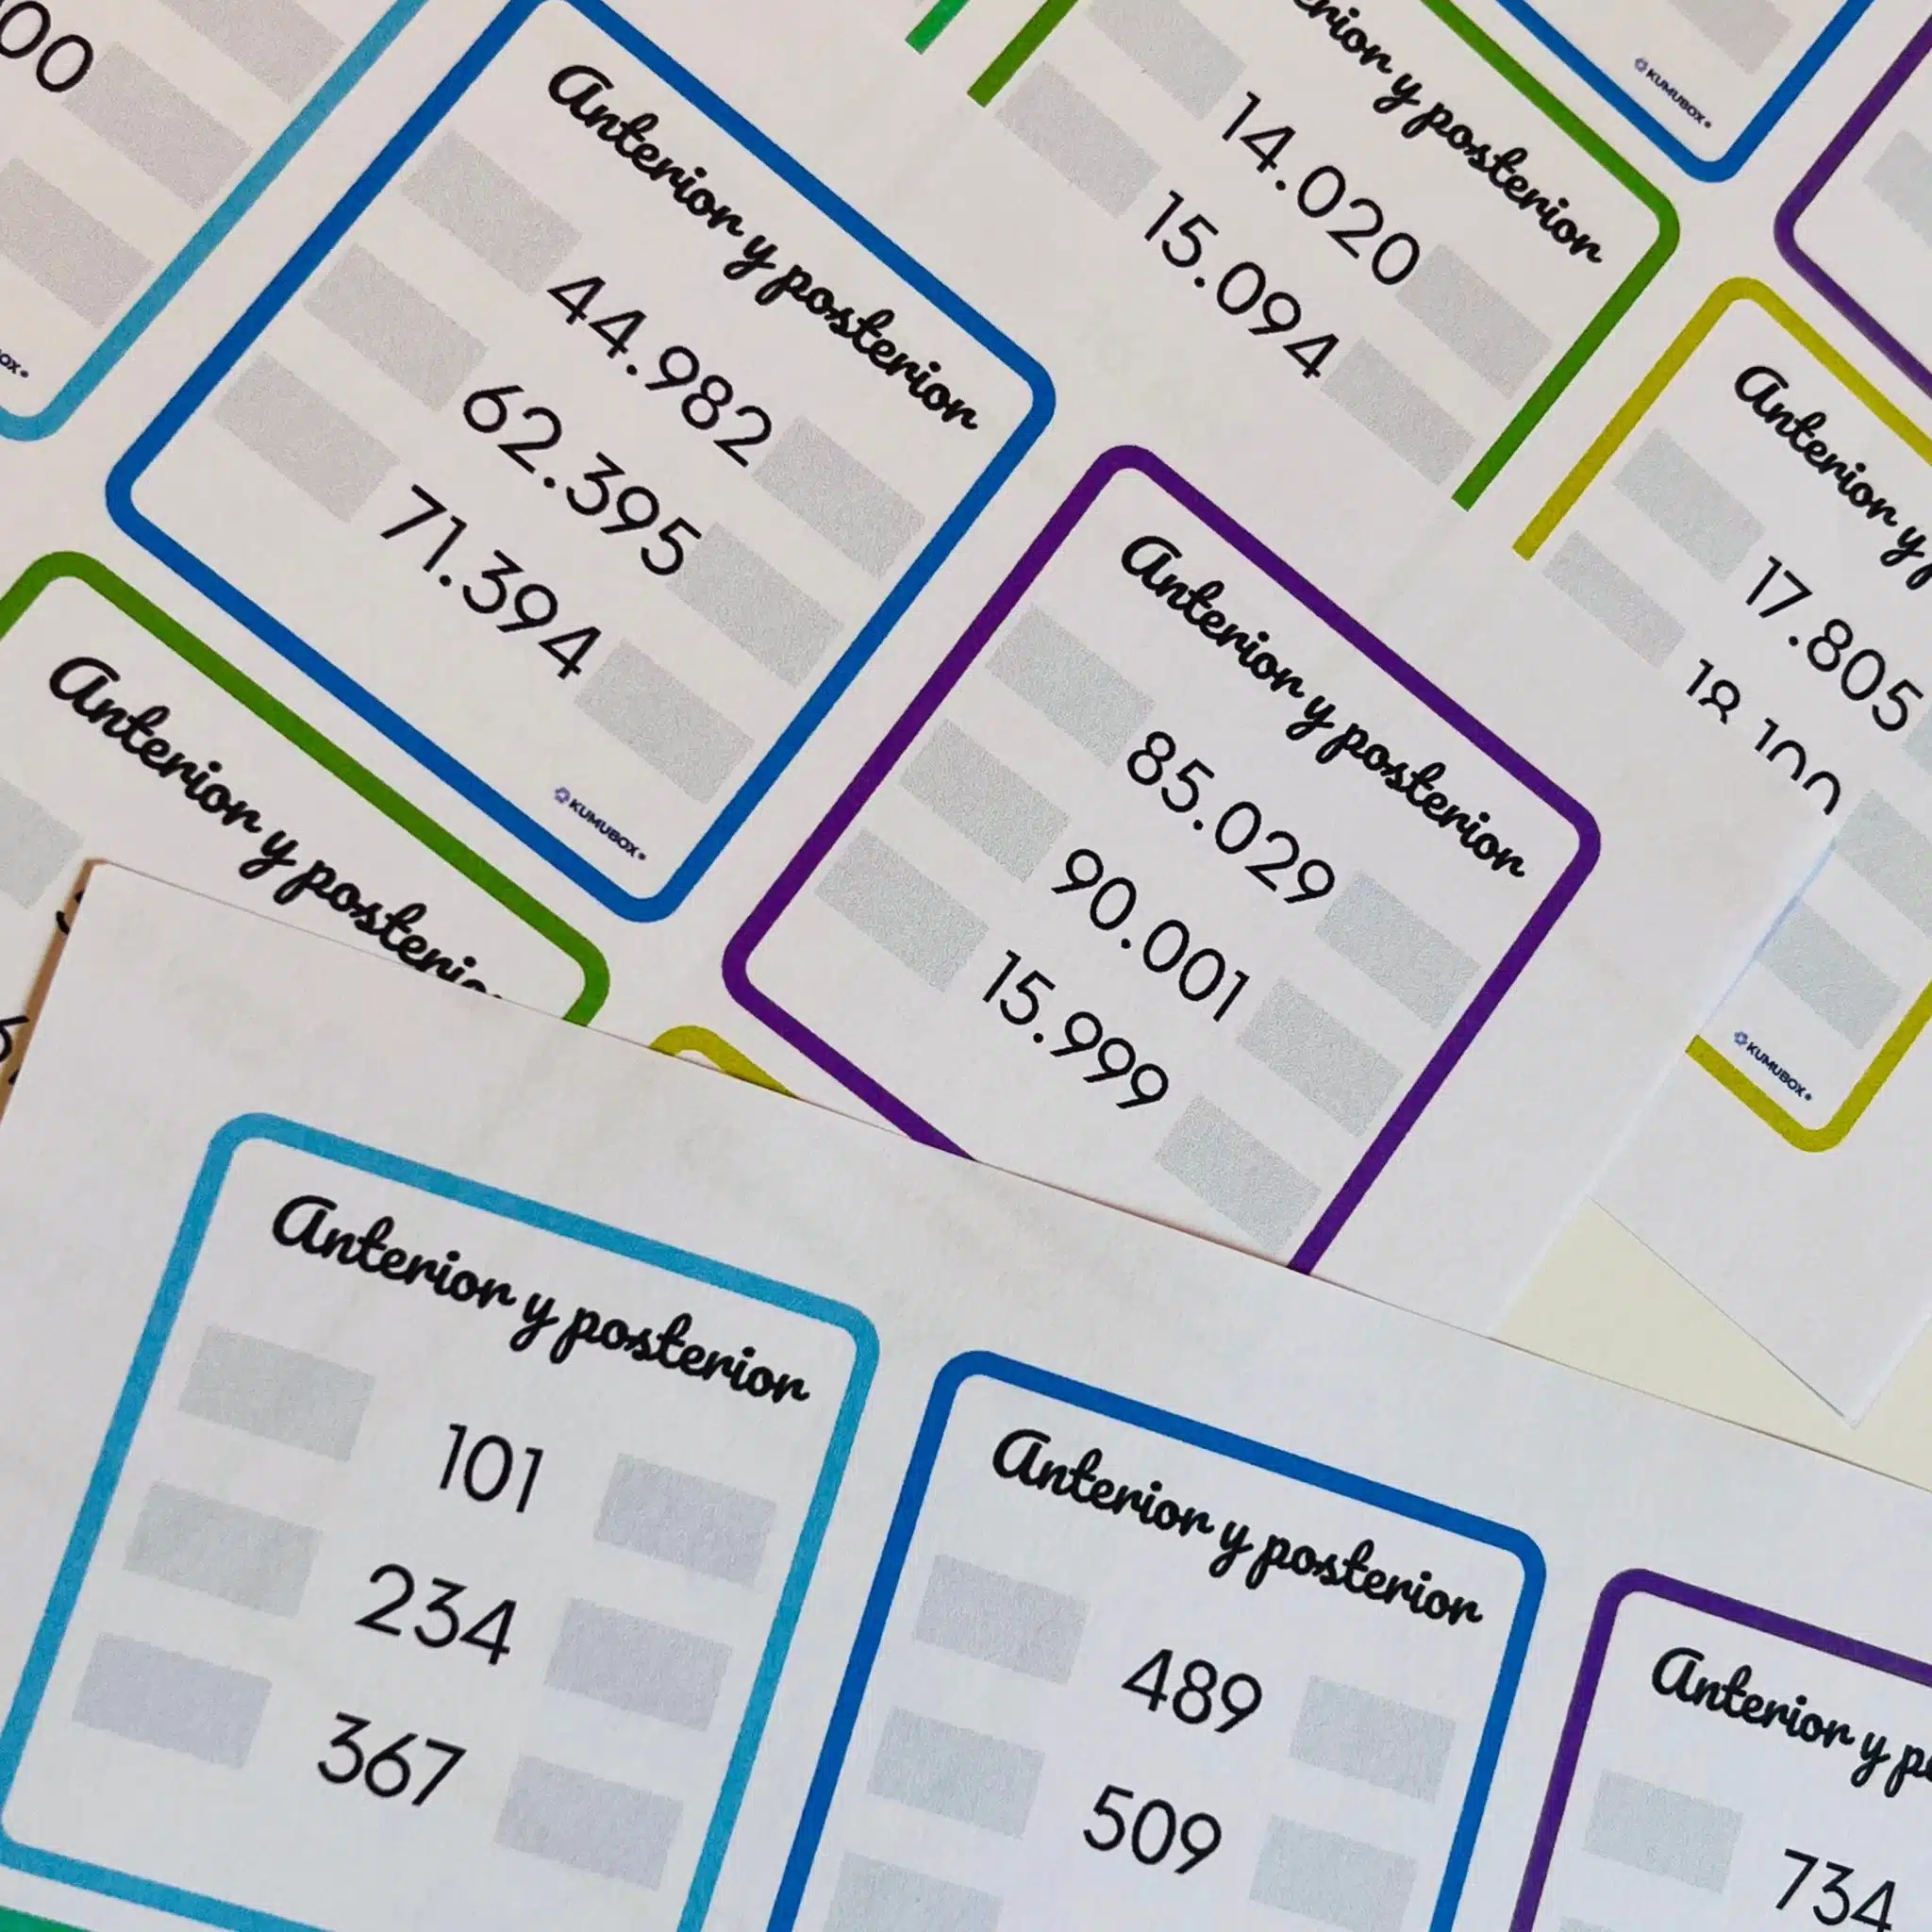 Anterior y posterior
44.982
62.395
71.394
KUMUBOX
y posterior
14.020
15.094
KUMUBOX
Anterior y
17.805
KUMUBOX
Anterior y posterior
85.029
90.001
15.999
Anterior y
Anterior y posterior
101
234
367
Anterior y posterior
489
509
Anterior y
734